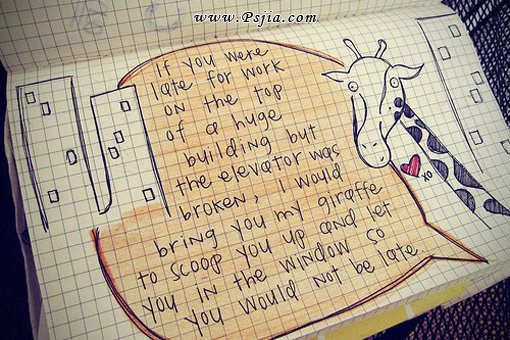 www.Psjia.com
If you were
late for work
on the top
of a huge
building but
the elevator was
broken, I would
bring you my giraffe
to scoop you up and let
you in the window so
you would not be late.
xo